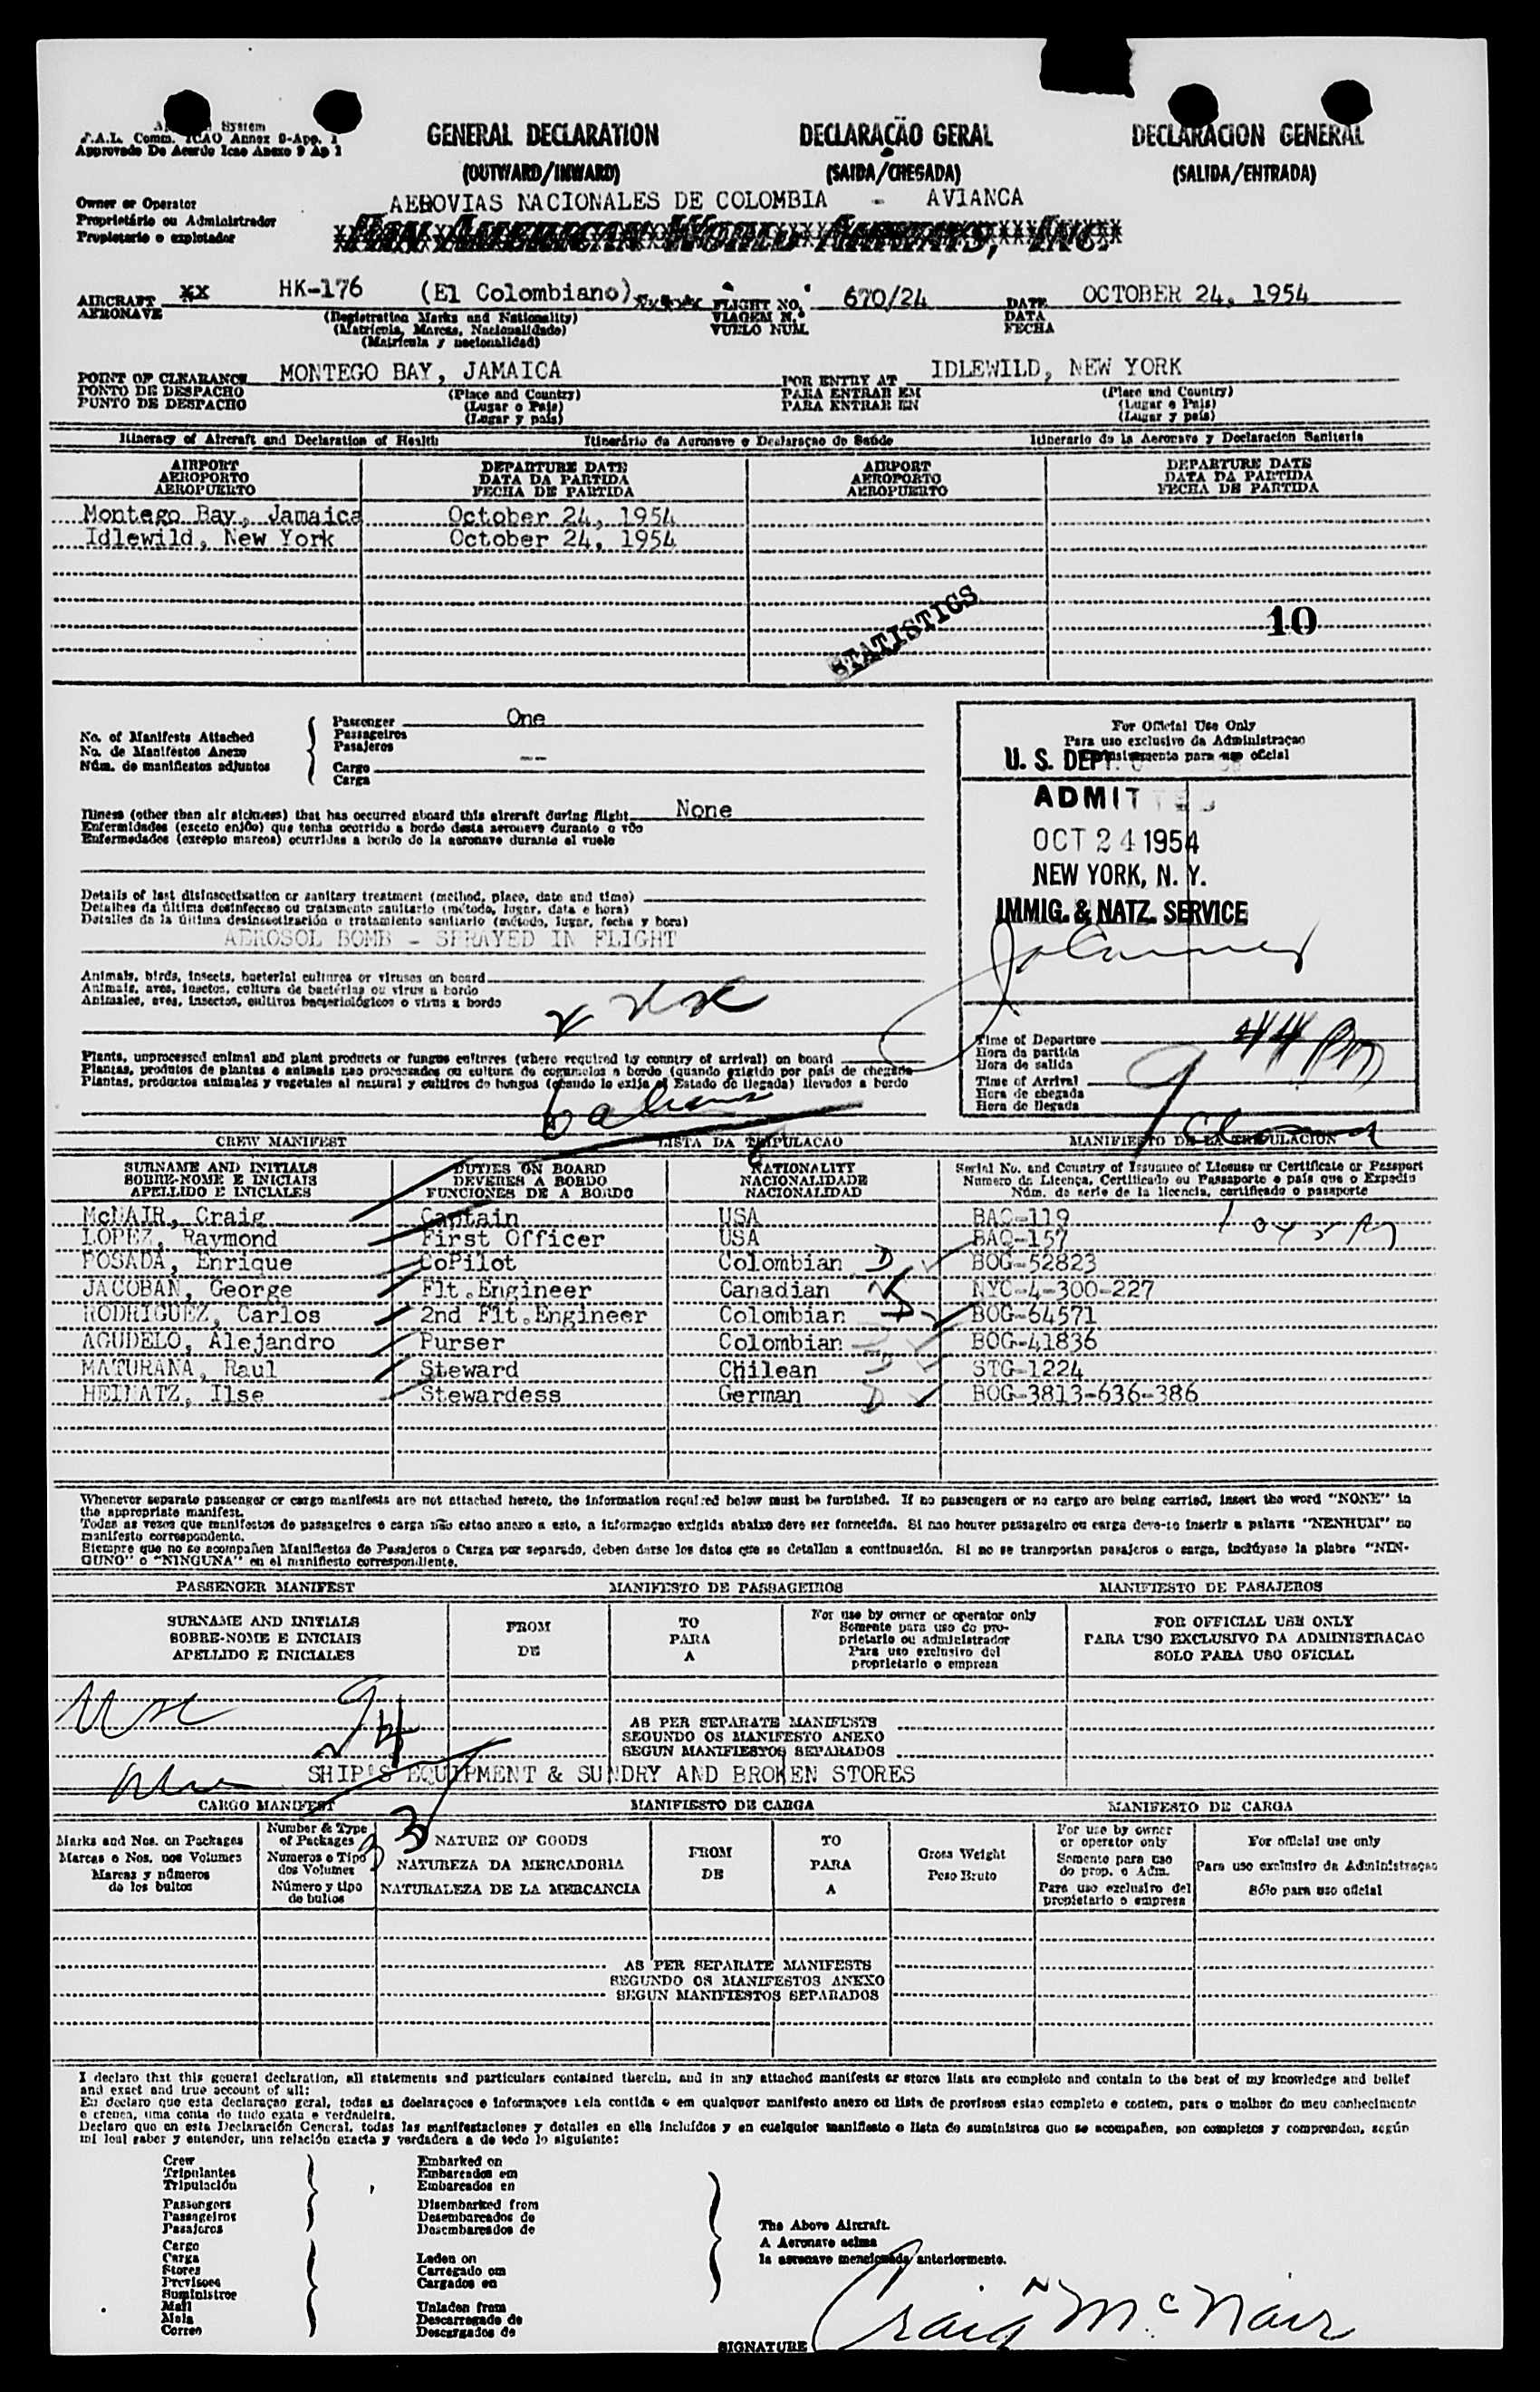 System
F.A.L. Comm. ICAO Annex 9-App. 1
Approvado De Acerdo Icao Anexo 9 Ap 1
GENERAL DECLARATION DECLARAÇÃO GERAL DECLARACION GENERAL
(OUTWARD/INWARD) (SAIDA/CHEGADA) (SALIDA/ENTRADA)
Owner or Operator AEROVIAS NACIONALES DE COLOMBIA - AVIANCA
Proprietário ou Administrador
Propietario o explotador PAN AMERICAN WORLD AIRWAYS, INC.
AIRCRAFT xx HK-176 (El Colombiano) FLIGHT NO. 670/24 DATE OCTOBER 24, 1954
AERONAVE (Registration Marks and Nationality) VIAGEM N.º DATA
(Matricula, Marcas, Nacionalidade) VUELO NUM. FECHA
(Matricula y nacionalidad)
POINT OF CLEARANCE MONTEGO BAY, JAMAICA FOR ENTRY AT IDLEWILD, NEW YORK
PONTO DE DESPACHO (Place and Country) PARA ENTRAR EM (Place and Country)
PUNTO DE DESPACHO (Lugar o Pais) PARA ENTRAR EN (Lugar o Pais)
(Lugar y país) (Lugar y país)
Itinerary of Aircraft and Declaration of Health Itinerário da Aeronave e Declaraçao de Saúde Itinerario de la Aeronave y Declaracion Sanitaria
AIRPORT DEPARTURE DATE AIRPORT DEPARTURE DATE
AEROPORTO DATA DA PARTIDA AEROPORTO DATA DA PARTIDA
AEROPUERTO FECHA DE PARTIDA AEROPUERTO FECHA DE PARTIDA
Montego Bay, Jamaica October 24, 1954
Idlewild, New York October 24, 1954
STATISTICS
10
Passenger One
No. of Manifests Attached Passageiros
No. de Manifestos Anexo Pasajeros
Núm. de manifiestos adjuntos Cargo --
Carga
For Official Use Only
Para uso exclusivo da Administraçao
U. S. DEPT.
ADMITTED
OCT 24 1954
NEW YORK, N. Y.
IMMIG. & NATZ. SERVICE
Illness (other than air sickness) that has occurred aboard this aircraft during flight None
Enfermidades (exceto enjôo) que tenha ocorrido a bordo desta aeronave durante o vôo
Enfermedades (excepto mareos) ocurridas a bordo de la aeronave durante el vuelo
Details of last disinsectization or sanitary treatment (method, place, date and time)
Detalhes da última desinfeccao ou tratamento sanitario (método, lugar, data e hora)
Detalles de la última desinsectización o tratamiento sanitario (método, lugar, fecha y hora)
AEROSOL BOMB - SPRAYED IN FLIGHT
Animals, birds, insects, bacterial cultures or viruses on board
Animais, aves, insetos, cultura de bactérias ou virus a bordo
Animales, aves, insectos, cultivos bacteriológicos o virus a bordo
Plants, unprocessed animal and plant products or fungus cultures (where required by country of arrival) on board
Plantas, produtos de plantas e animais nao processados ou cultura de cogumelos a bordo (quando exigido por país de chegada
Plantas, productos animales y vegetales al natural y cultivos de hongos (cuando lo exija el Estado de llegada) llevados a bordo
Time of Departure
Hora da partida
Hora de salida
Time of Arrival
Hora de chegada
Hora de llegada
CREW MANIFEST LISTA DA TRIPULACAO MANIFIESTO DE LA TRIPULACION
SURNAME AND INITIALS DUTIES ON BOARD NATIONALITY Serial No. and Country of Issuance of License or Certificate or Passport
SOBRE-NOME E INICIAIS DEVERES A BORDO NACIONALIDADE Numero da Licença, Certificado ou Passaporte e país que o Expediu
APELLIDO E INICIALES FUNCIONES DE A BORDO NACIONALIDAD Núm. de serie de la licencia, certificado o pasaporte
McNAIR, Craig Captain USA BAQ-119
LOPEZ, Raymond First Officer USA BAQ-157
POSADA, Enrique CoPilot Colombian D BOG-52823
JACOBAN, George Flt.Engineer Canadian NYC-4-300-227
RODRIGUEZ, Carlos 2nd Flt.Engineer Colombian D BOG-64571
AGUDELO, Alejandro Purser Colombian BOG-41836
MATURANA, Raul Steward Chilean STG-1224
HEINATZ, Ilse Stewardess German D BOG-3813-636-386
Whenever separate passenger or cargo manifests are not attached hereto, the information required below must be furnished. If no passengers or no cargo are being carried, insert the word "NONE" in
the appropriate manifest.
Todas as vezes que manifestos de passageiros e carga não estao anexo a esto, a informaçao exigida abaixo deve ser fornecida. Si nao houver passageiro ou carga deve-se inserir a palavra "NENHUM" no
manifesto correspondente.
Siempre que no se acompañen Manifiestos de Pasajeros o Carga por separado, deben darse los datos que se detallan a continuación. Si no se transportan pasajeros o carga, inclúyase la plabra "NIN-
GUNO" o "NINGUNA" en el manifiesto correspondiente.
PASSENGER MANIFEST MANIFESTO DE PASSAGEIROS MANIFIESTO DE PASAJEROS
SURNAME AND INITIALS FROM TO For use by owner or operator only FOR OFFICIAL USE ONLY
SOBRE-NOME E INICIAIS DE PARA Somente para uso do proprietario ou administrador PARA USO EXCLUSIVO DA ADMINISTRACAO
APELLIDO E INICIALES A Para uso exclusivo del proprietario o empresa SOLO PARA USO OFICIAL
AS PER SEPARATE MANIFESTS
SEGUNDO OS MANIFESTO ANEXO
SEGUN MANIFIESTOS SEPARADOS
SHIP'S EQUIPMENT & SUNDRY AND BROKEN STORES
CARGO MANIFEST MANIFIESTO DE CARGA MANIFESTO DE CARGA
Marks and Nos. on Packages Number & Type of Packages NATURE OF GOODS FROM TO Gross Weight For use by owner or operator only For official use only
Marcas e Nos. nos Volumes Numeros e Tipo dos Volumes NATUREZA DA MERCADORIA DE PARA Peso Bruto Somente para uso do prop. o Adm. Para uso exclusivo da Administraçao
Marcas y números de los bultos Número y tipo de bultos NATURALEZA DE LA MERCANCIA A Para uso exclusivo del propietario o empresa Sólo para uso oficial
AS PER SEPARATE MANIFESTS
SEGUNDO OS MANIFESTOS ANEXO
SEGUN MANIFIESTOS SEPARADOS
I declare that this general declaration, all statements and particulars contained therein, and in any attached manifests or stores lists are complete and contain to the best of my knowledge and belief
and exact and true account of all:
Eu declaro que esta declaraçao geral, todas as declaraçoes e informaçoes nela contida e em qualquer manifesto anexo ou lista de provisoes estao completo e contem, para o malhor do meu conhecimento
e crenca, uma conta do tudo exata e verdadeira.
Declaro que en esta Declaración General, todas las manifestaciones y detalles en ella incluídos y en cualquier manifiesto o lista de suministros que se acompañen, son completos y comprenden, según
mi leal saber y entender, una relación exacta y verdadera a de todo lo siguiente:
Crew Embarked on
Tripulantes Embarcados em
Tripulación Embarcados en
Passengers Disembarked from
Passageiros Desembarcados de
Pasajeros Desembarcados de
The Above Aircraft.
A Aeronave acima
la aeronave mencionada anteriormente.
Cargo
Carga Laden on
Stores Carregado em
Previsoes Cargados en
Suministros
Mail Unladen from
Mala Descarregado de
Correo Descargados de
SIGNATURE Craig McNair